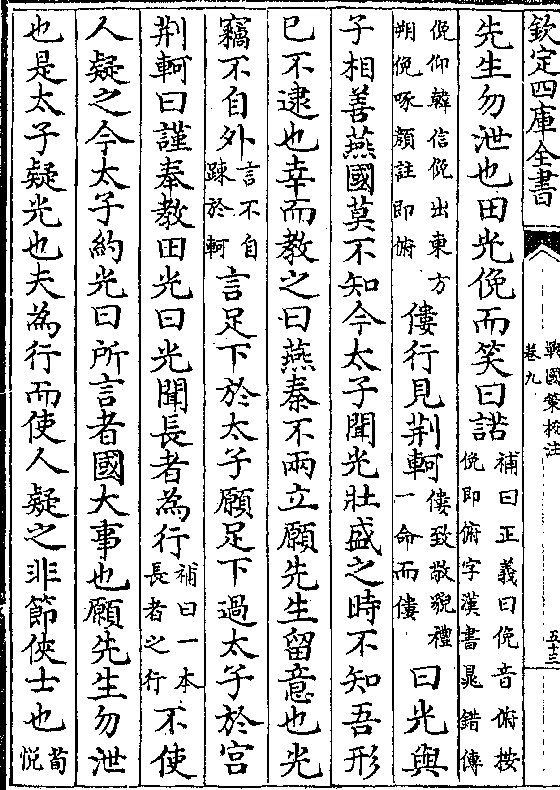 欽定四庫全書
戰國策校注
卷九
五十三
先生勿泄也田光俛而笑曰諾補曰正義曰俛音俯按俛即俯字漢書晁錯傳
俛仰韓信俛出東方朔俛啄顔註即俯僂行見荆軻僂致敬貌禮一命而僂曰光與
子相善燕國莫不知今太子聞光壯盛之時不知吾形
已不逮也幸而教之曰燕秦不兩立願先生留意也光
竊不自外言不自踈於軻言足下於太子願足下過太子於宫
荆軻曰謹奉教田光曰光聞長者為行補曰一本長者之行不使
人疑之今太子約光曰所言者國大事也願先生勿泄
也是太子疑光也夫為行而使人疑之非節俠士也荀悦